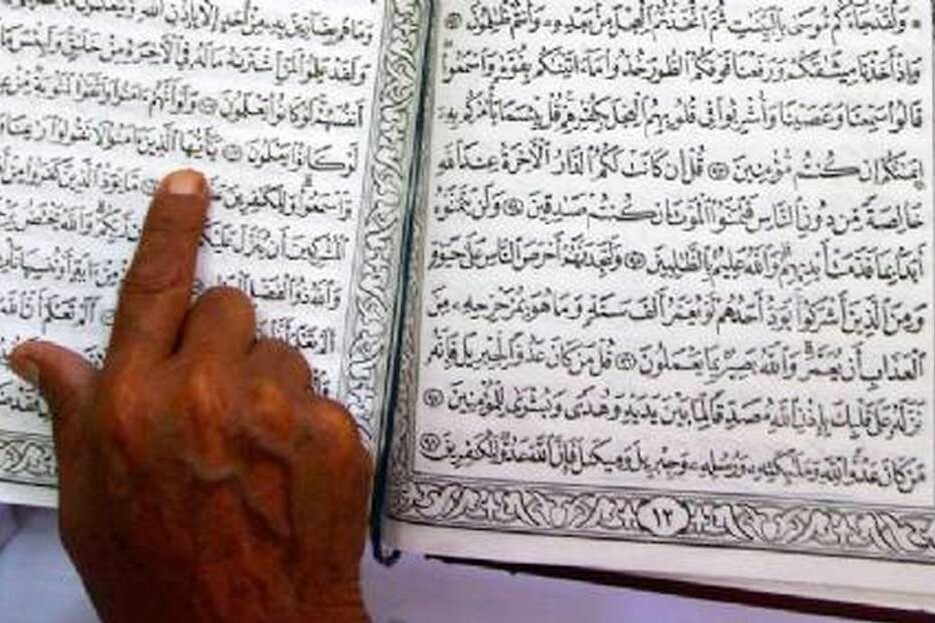 ۞ ولقد جاءكم موسى بالبينت ثم اتخذتم العجل من بعده وأنتم ظلمون ٩٢
وإذ أخذنا ميثقكم ورفعنا فوقكم الطور خذوا ما ءاتينكم بقوة واسمعوا
قالوا سمعنا وعصينا وأشربوا في قلوبهم العجل بكفرهم قل بئسما يأمركم به
إيمنكم إن كنتم مؤمنين ٩٣ قل إن كانت لكم الدار الأخرة عند الله
خالصة من دون الناس فتمنوا الموت إن كنتم صدقين ٩٤ ولن يتمنوه
أبدا بما قدمت أيديهم والله عليم بالظلمين ٩٥ ولتجدنهم أحرص الناس على حيوة
ومن الذين أشركوا يود أحدهم لو يعمر ألف سنة وما هو بمزحزحه من
العذاب أن يعمر والله بصير بما يعملون ٩٦ قل من كان عدوا لجبريل فإنه
نزله على قلبك بإذن الله مصدقا لما بين يديه وهدى وبشرى للمؤمنين ٩٧
من كان عدوا لله وملئكته ورسله وجبريل وميكىل فإن الله عدو للكفرين ٩٨
١٢
وما هم بضارين به من أحد إلا بإذن الله ويتعلمون
ولقد علموا لمن اشترىه ما له في الأخرة من خلق ولبئس ما
أنفسهم لو كانوا يعلمون ١٠٢ ولو أنهم ءامنوا واتقوا لمثوبة من
لو كانوا يعلمون ١٠٣ يأيها الذين ءامنوا لا تقولوا رعنا
واسمعوا وللكفرين ما يود الذين كفروا من
المشركين أن ينزل عليكم ربكم والله يختص
والله ذو الفضل ءاية أو ننسها نأت
ألم تعلم أن ألم تعلم أن الله